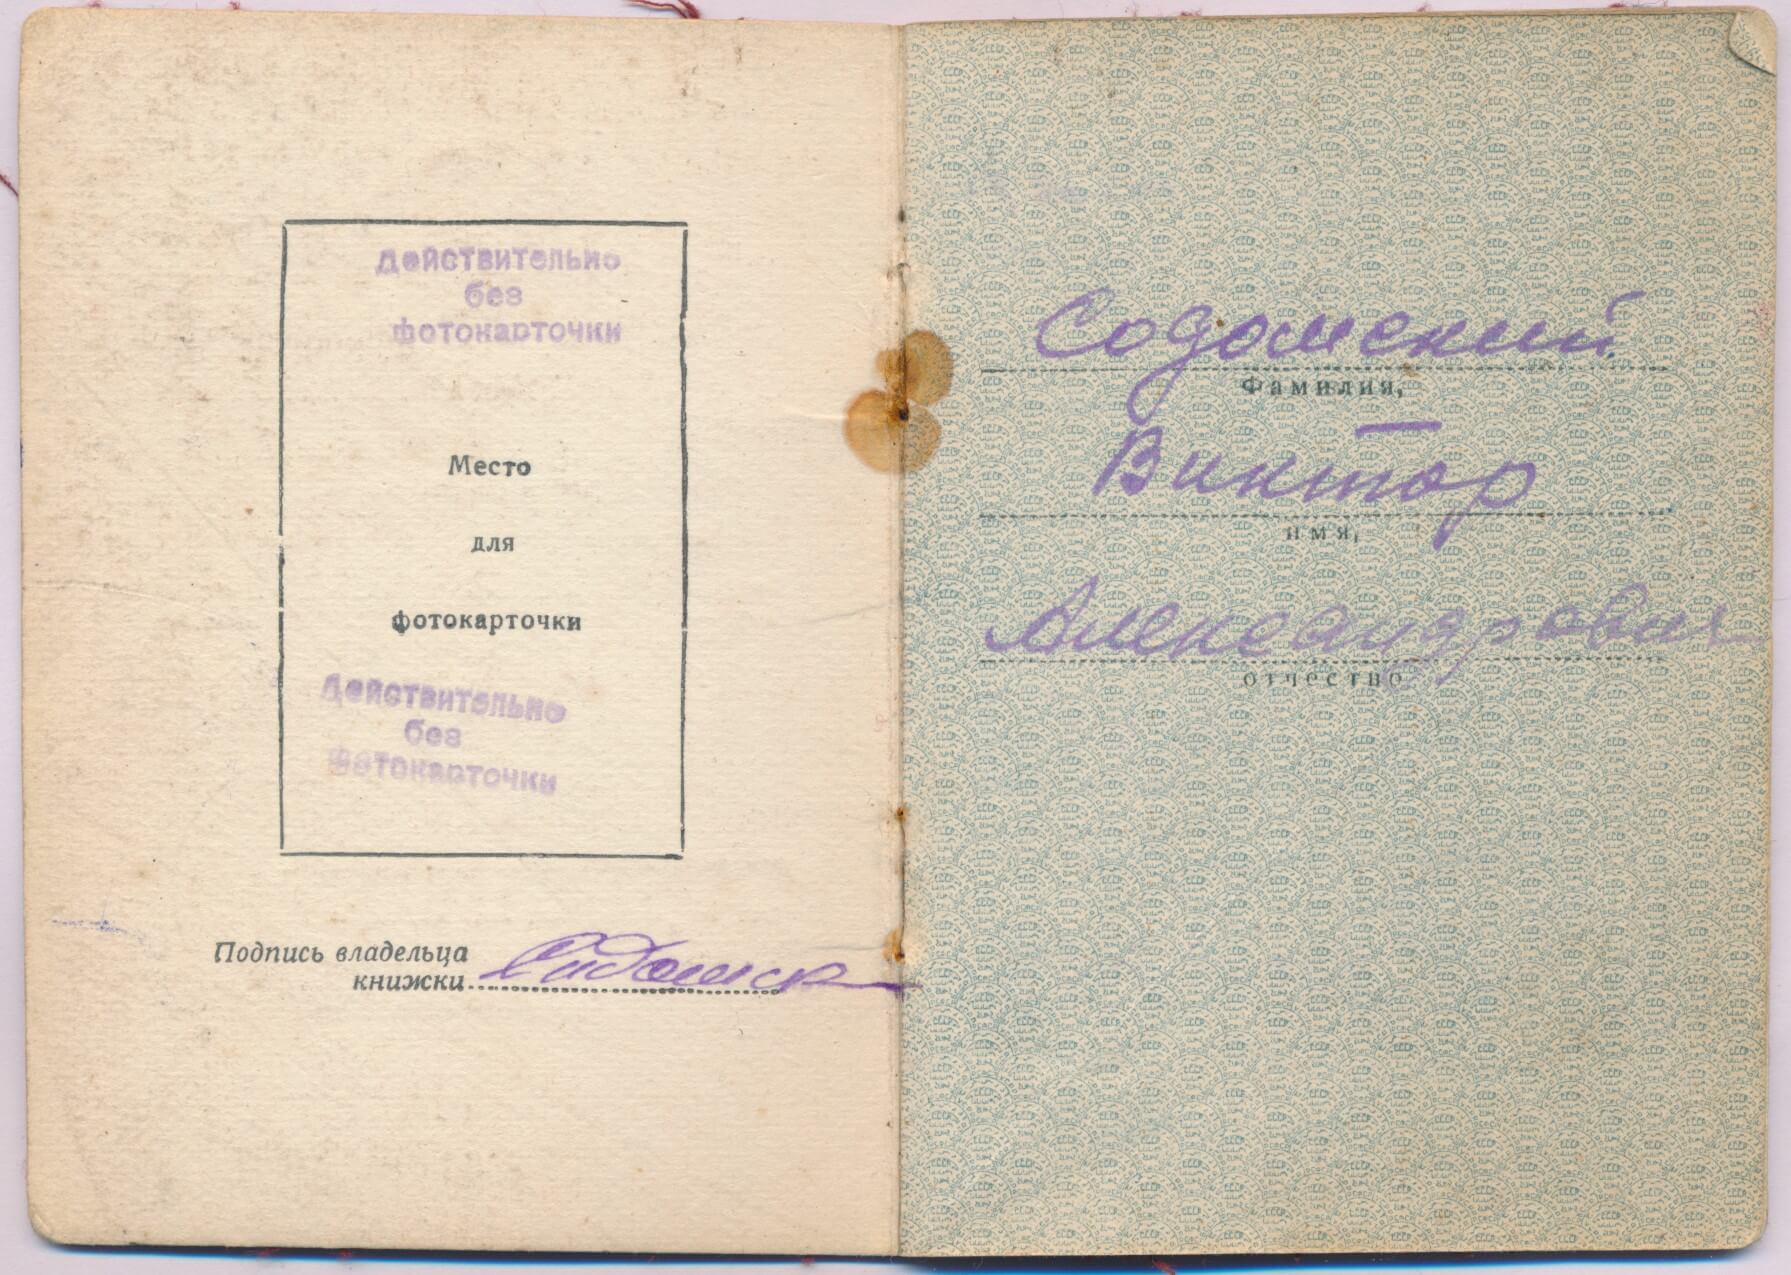 Действительно
без
фотокарточки
Место
для
фотокарточки
Действительно
без
фотокарточки
Подпись владельца
книжки
Содомский
Фамилия,
Виктор
имя,
Александрович
отчество